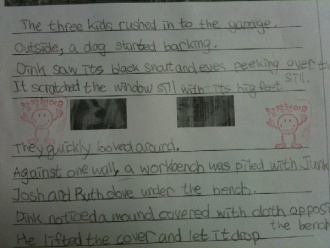 The three kids rushed in to the garage.
Outside, a dog started barking.
Dink saw its black snout and eyes peeking over t
sill.
It scratched the window sill with its big feet
They quickly looked around.
Against one wall, a workbench was piled with Junk
Josh and Ruth dove under the bench.
Dink noticed a mound covered with cloth opposi
the bench
He lifted the cover and let it drop